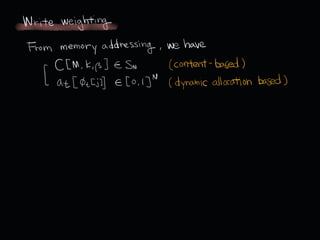 Write weighting
From memory addressing, we have
C[M, k, β] ∈ S_N (content-based)
a_t[φ_t[j]] ∈ [0,1]^N (dynamic allocation based)